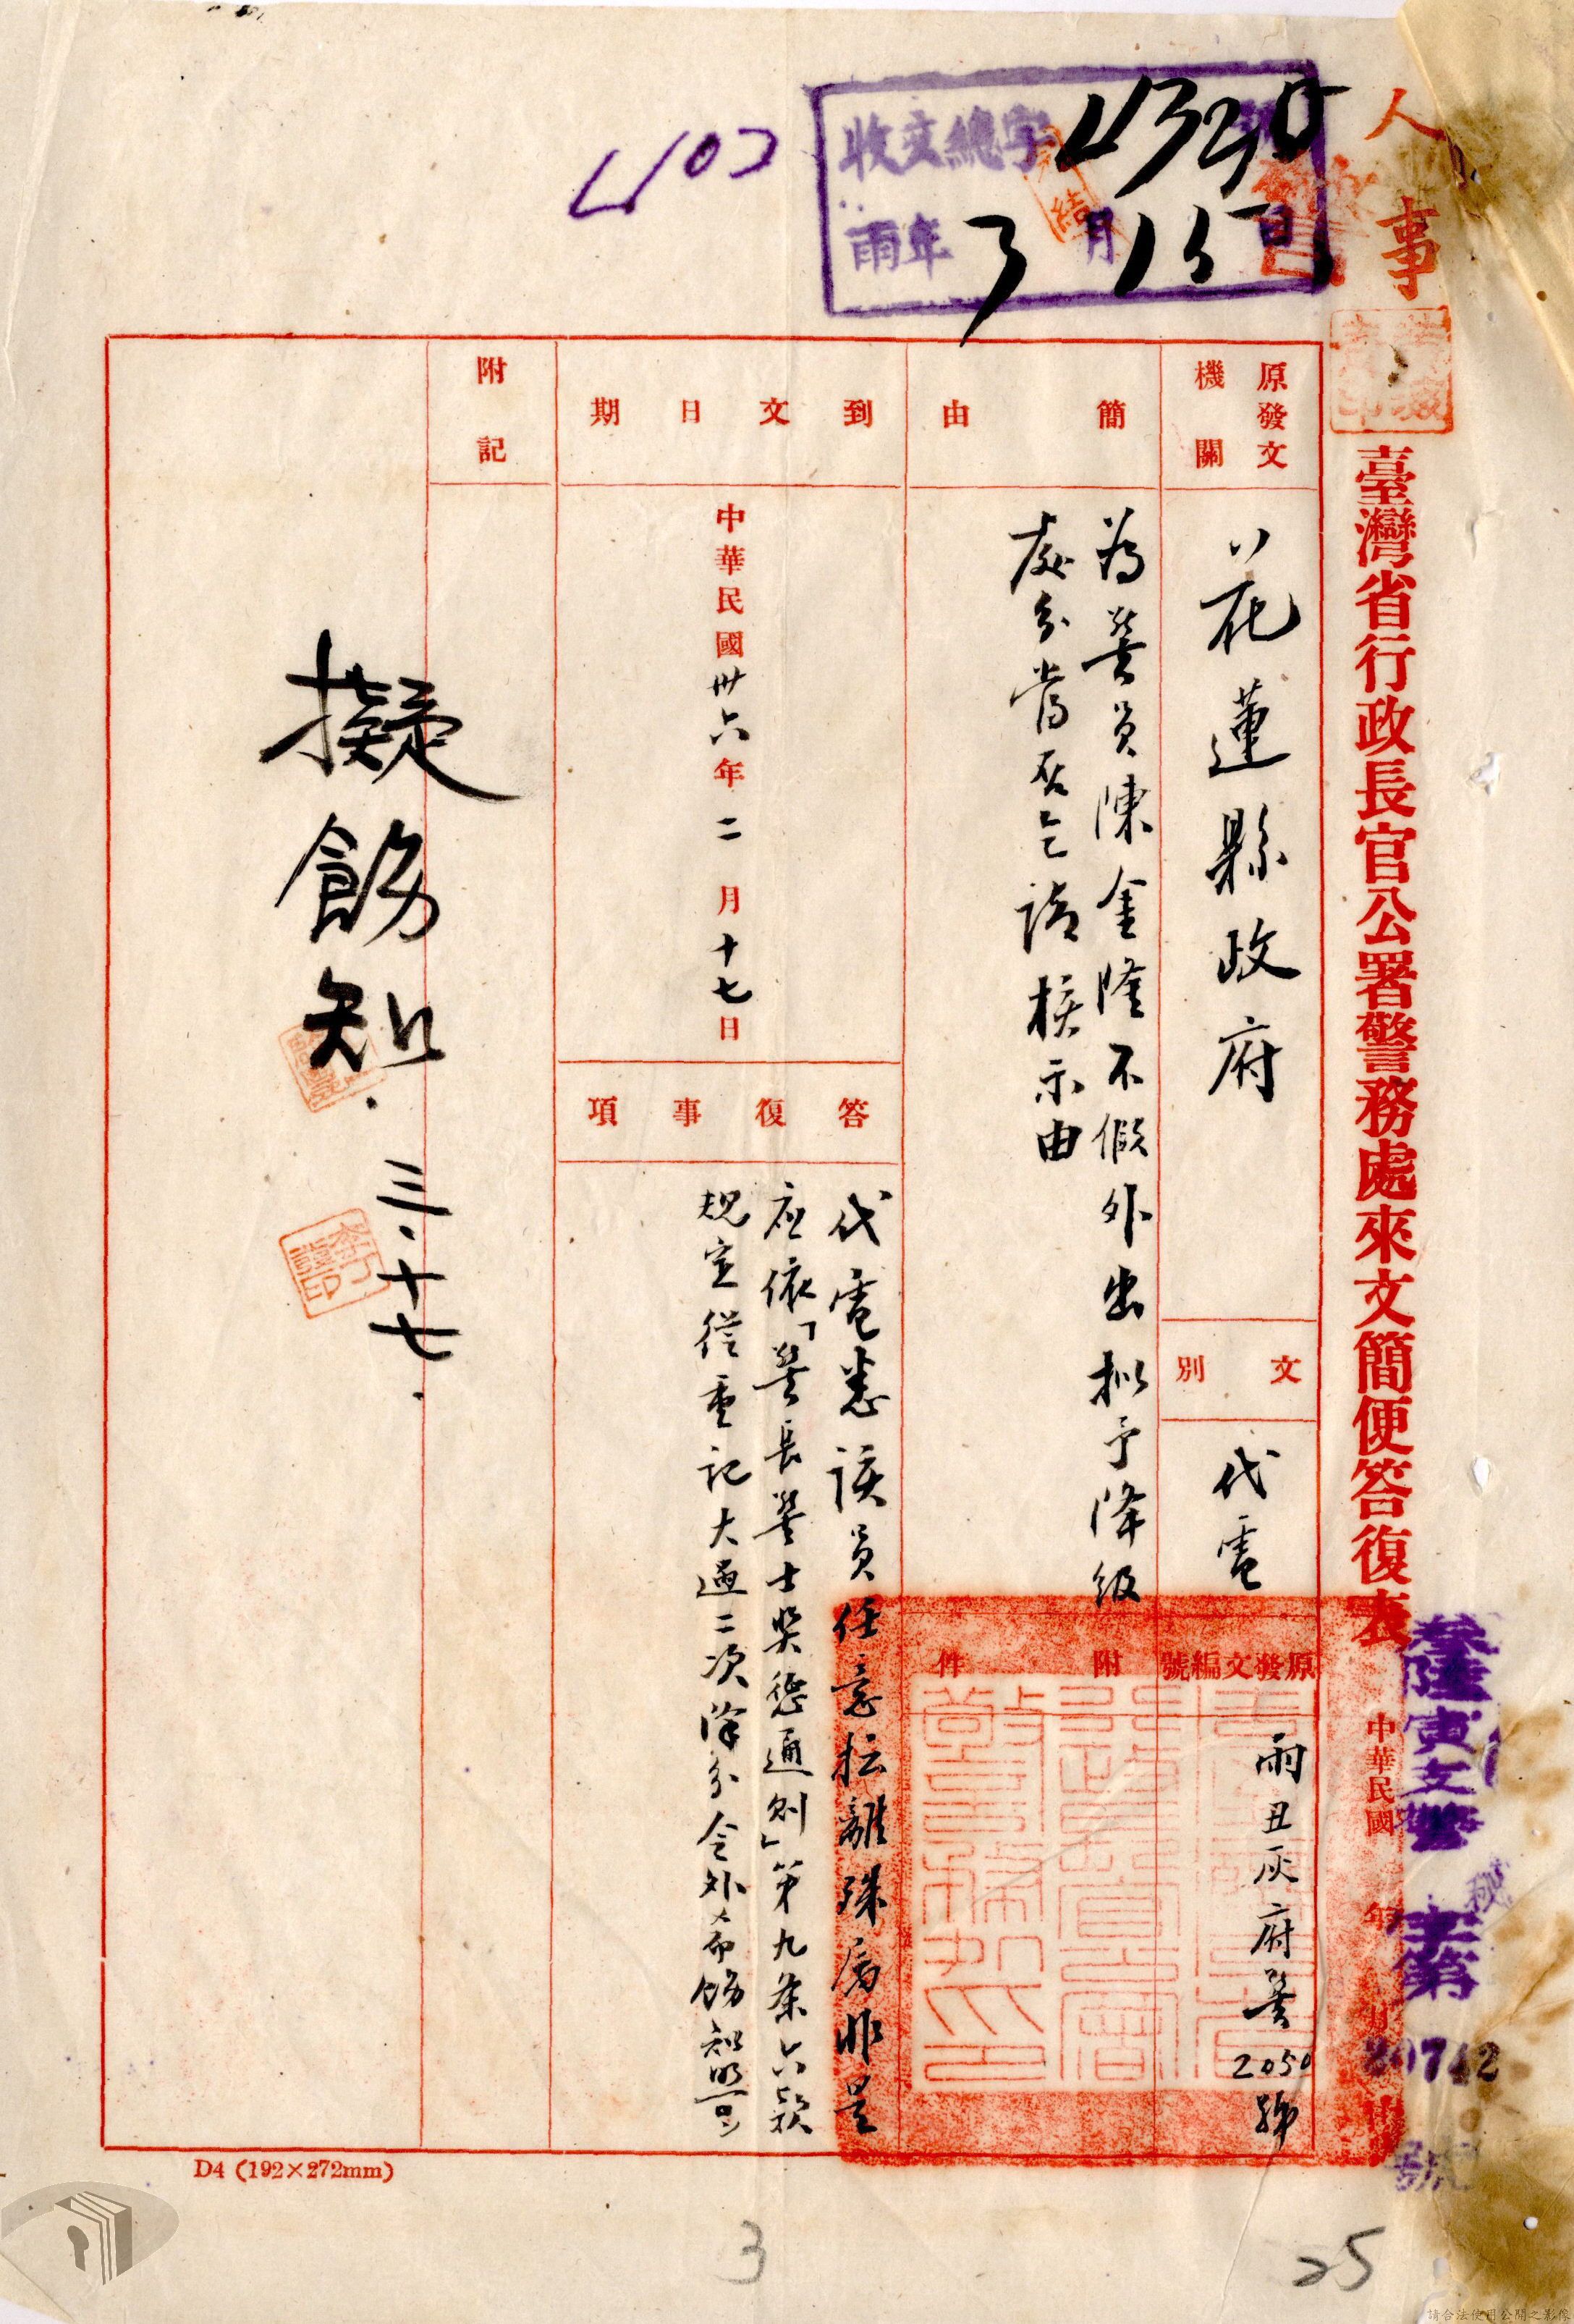 人事
收文總字 4325 號
雨年 3 月 15 日
402
臺灣省行政長官公署警務處來文簡便答復表
中華民國 年 月 日
叁陸寅文警 秘 字第 30742 號
原發文機關
花蓮縣政府
文別
代電
原發文編號
雨丑灰府警2050號
簡由
為警員陳金隆不假外出拟予降級
處分當否乞請核示由
附件
到文日期
中華民國卅六年二月十七日
答復事項
代電悉該員任意抎離殊屬非是
应依「警長警士奖懲通則」第九条六款
規定從重記大過二次除分令外希飭知照
附記
擬飭知.
三.十七.
D4 (192×272mm)
3
25
請合法使用公開之影像